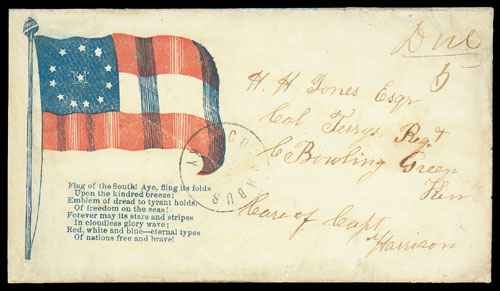 Due
5
H. H. Jones Esqr
Col Terrys Regt
Bowling Green
Ken
Care of Capt
Harrison
COLUMBUS
KY
Flag of the South! Aye, fling its folds
Upon the kindred breeze;
Emblem of dread to tyrant holds;
Of freedom on the seas!
Forever may its stars and stripes
In cloudless glory wave;
Red, white and blue—eternal types
Of nations free and brave!